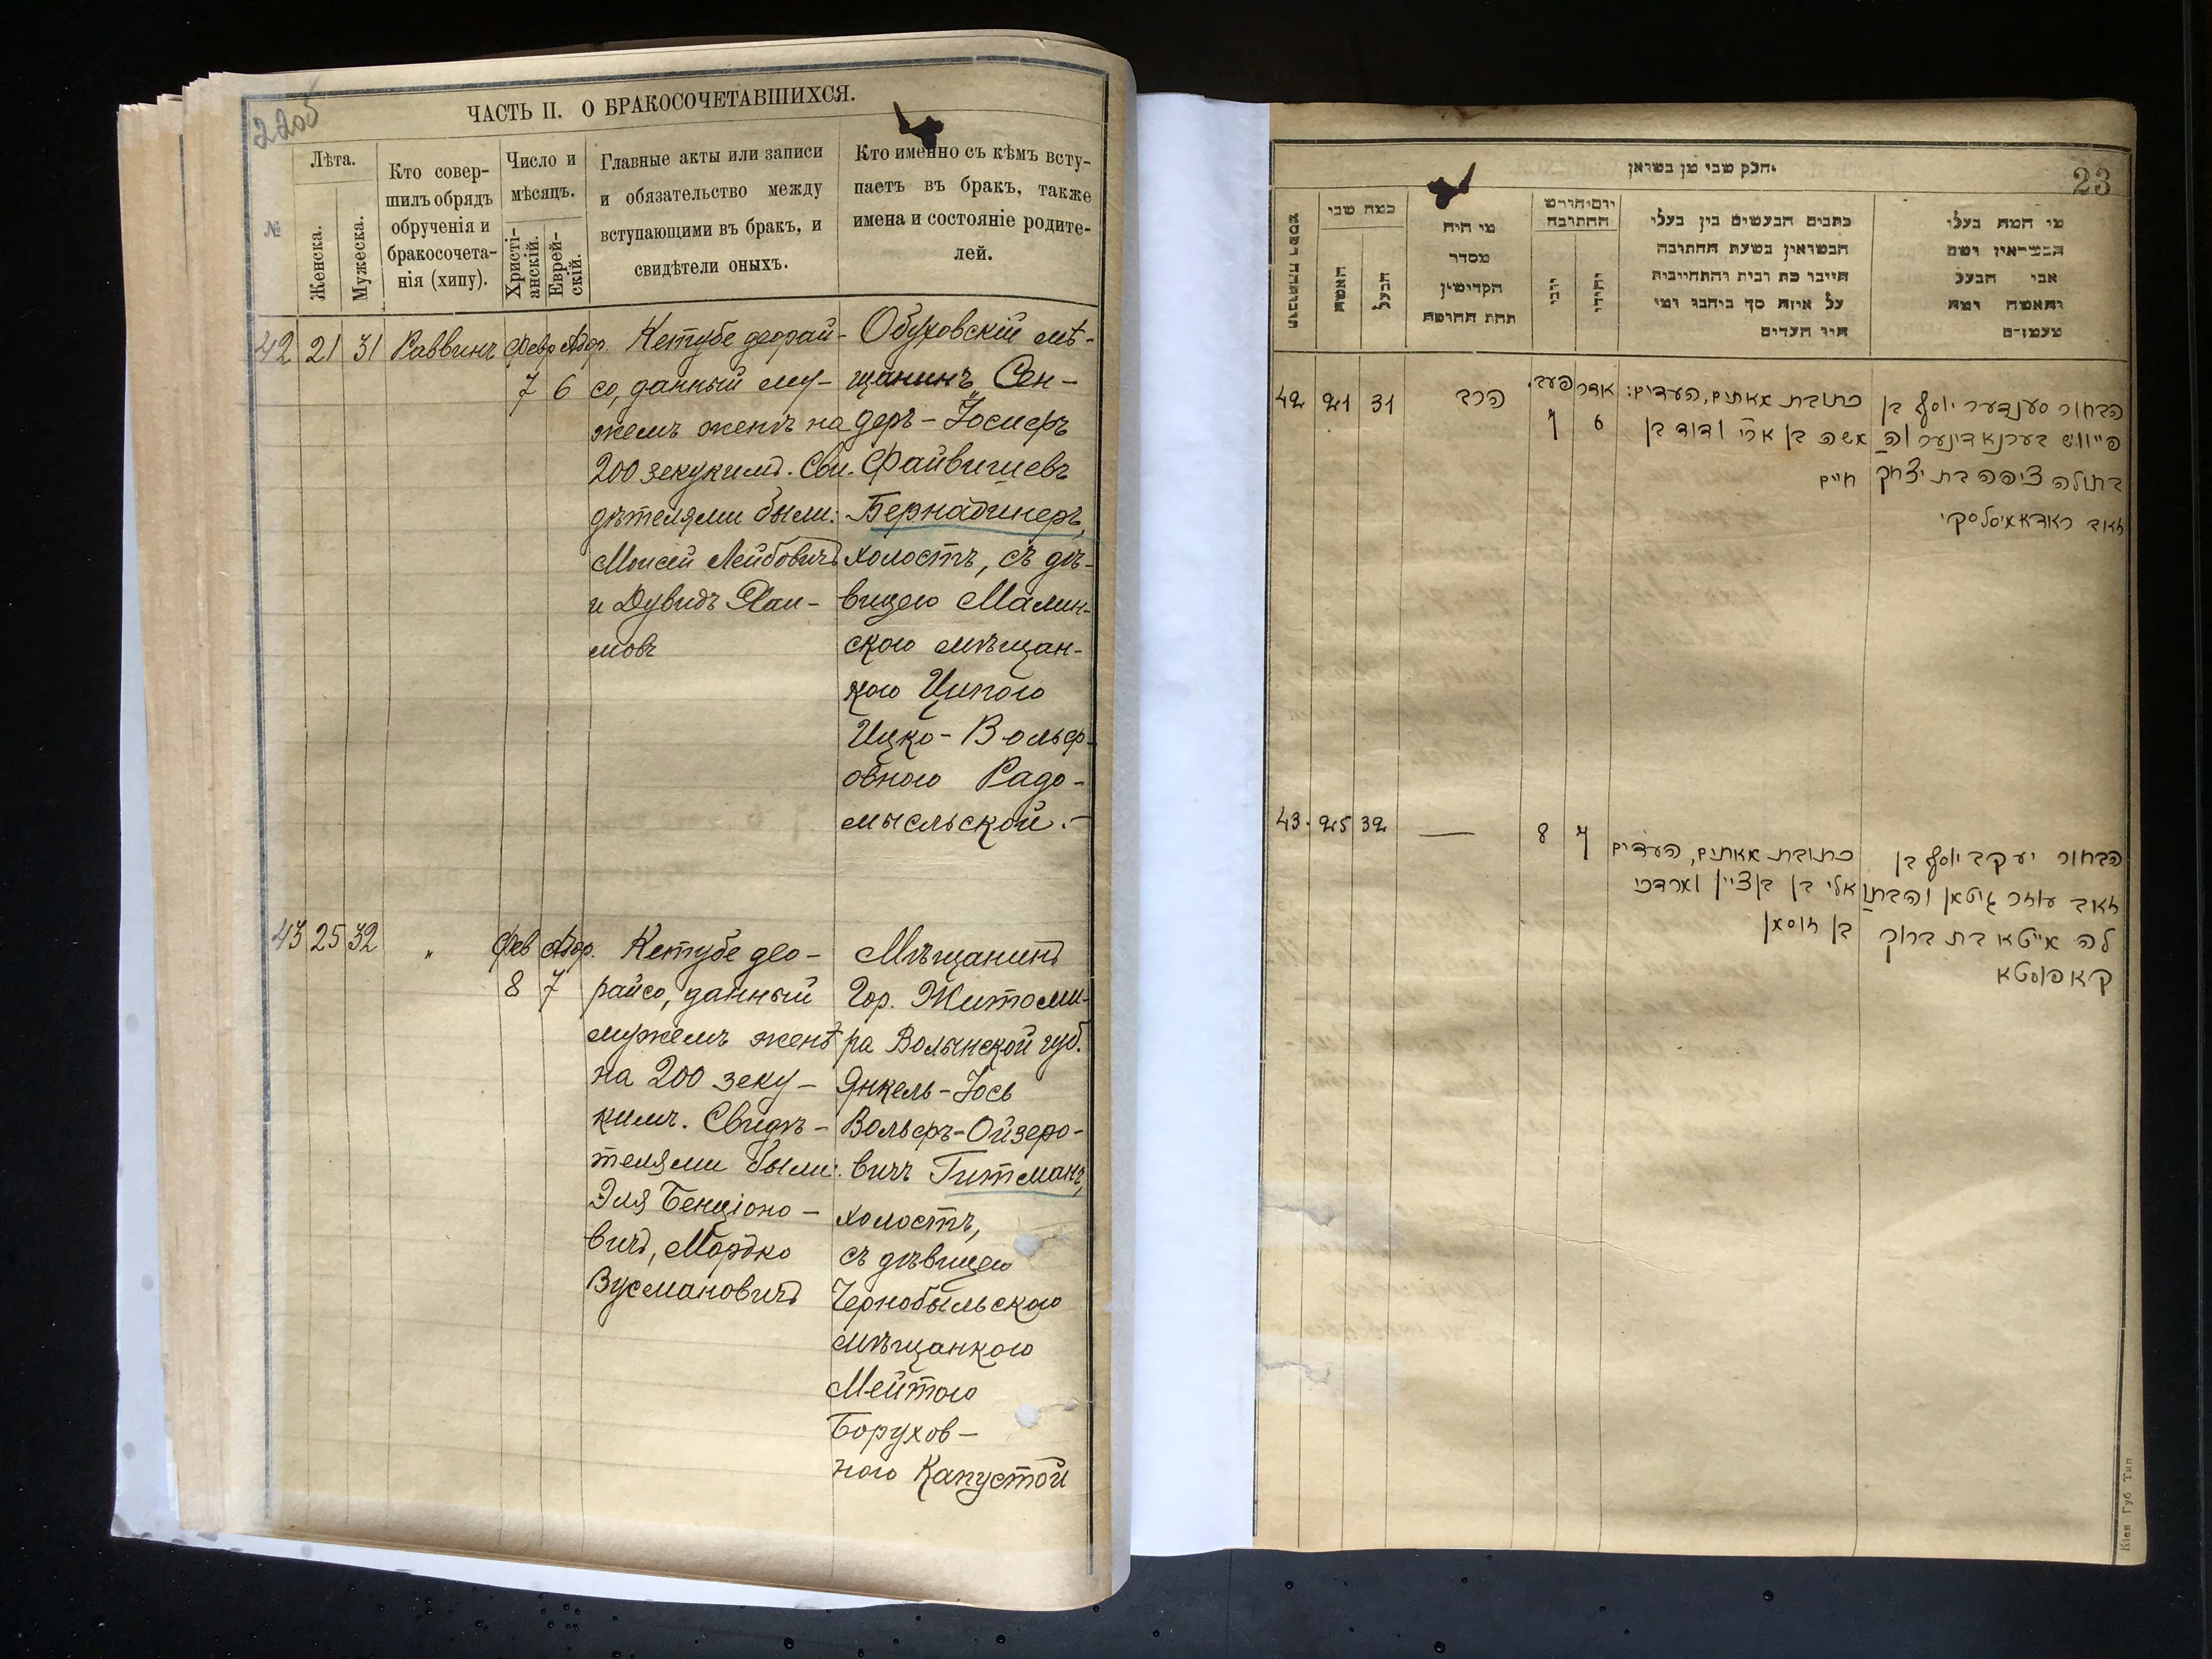 2205
ЧАСТЬ II. О БРАКОСОЧЕТАВШИХСЯ.
№
Лѣта.
Женска.
Мужеска.
Кто совер-
шилъ обрядъ
обрученія и
бракосочета-
нія (хипу).
Число и
мѣсяцъ.
Христі-
анскій.
Еврей-
скій.
Главные акты или записи
и обязательство между
вступающими въ бракъ, и
свидѣтели оныхъ.
Кто именно съ кѣмъ всту-
паетъ въ бракъ, также
имена и состояніе родите-
лей.
42 21 31 Раввинъ Февр Адор.
7 6
Кетубе деорай-
со, данный му-
жемъ женѣ на
200 зекукимъ. Сви-
дѣтелями были:
Моисей Лейбовичъ
и Дувидъ Хаи-
мовъ
Обуховскій мѣ-
щанинъ Сен-
деръ-Іосифъ
Файвишевъ
Бернадинеръ,
холостъ, съ дѣ-
вицею Малин-
скою мѣщан-
кою Ципою
Ицко-Вольф-
овною Радо-
мысльской.-
43 25 32 " Фев Адор.
8 7
Кетубе део-
райсо, данный
мужемъ женѣ
на 200 зеку-
кимъ. Свидѣ-
телями были:
Эля Бенціоно-
вичъ, Мордко
Зусмановичъ
Мѣщанинъ
Гор. Житоми-
ра Волынской губ.
Янкель-Іось
Вольфъ-Ойзеро-
вичъ Гитманъ,
холостъ,
съ дѣвицею
Чернобыльскою
мѣщанкою
Мейтою
Борухов-
ною Капустой
23
חלק שני מן נשואין.
מי המה בעלי
הנשואין ושם
אבי הבעל
והאשה ומה
מעמדם
כתבים הנעשים בין בעלי
הנשואין בשעת החתונה
חייבו כת דבית והתחייבות
על איזה סך ביניהם ומי
היו העדים
יום וחודש
החתונה
יהודי
מי היה
מסדר
הקדושין
תחת החופה
כמה שני
הבעל
האשה
42 21 31 הרב פעב. אדר
7 6
כתובת מאתים, העדים:
משה בן ארי ודוד בן
חיים
הבחור סענדער יוסף בן
פייוויש בערנאדינער וה
בתולה ציפה בת יצחק
זאב ראדאמיסלסקי
43. 25 32 — 8 7
כתובת מאתים, העדים
אלי בן בן ציין ומרדכי
בן זוסמן
הבחור יעקב יוסף בן
זאב עוזר גיטמן והבתו
לה מייטא בת ברוך
קאפוסטא
Кіев Губ Тип